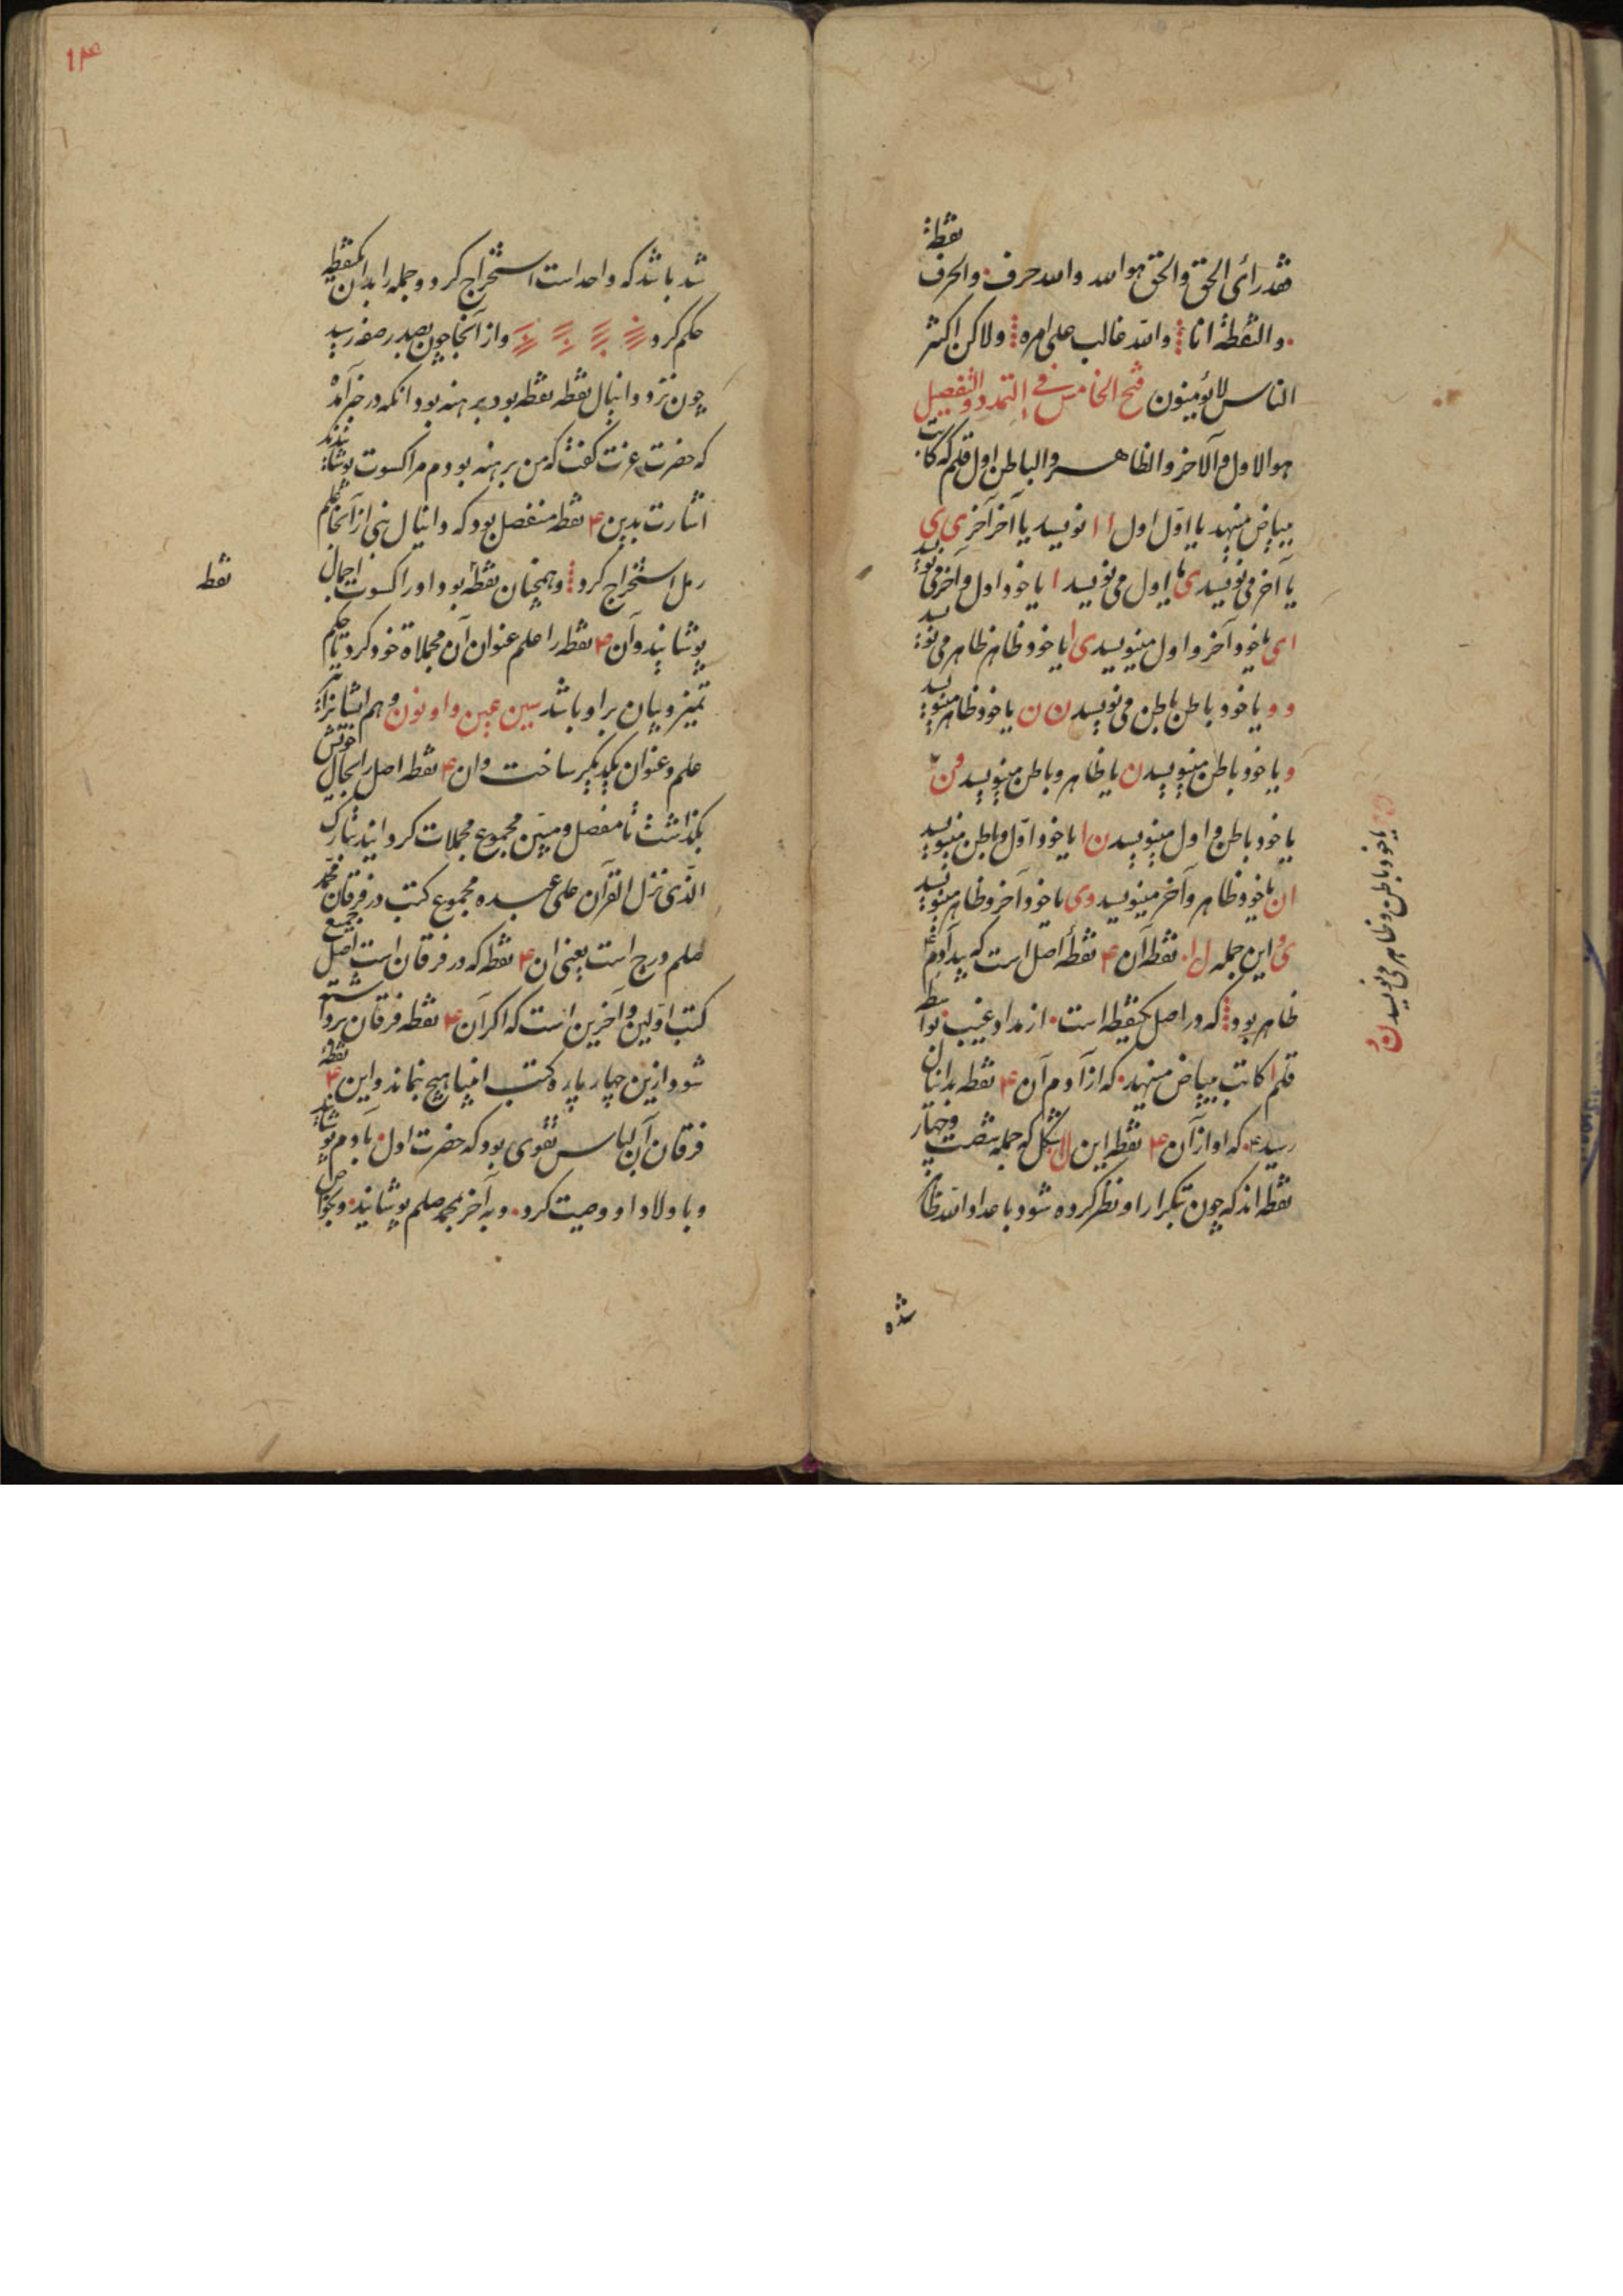 فقد رأی الحق والحق هو الله والله حرف ۰ والحرف نقطة
۰ والنقطة انا والله غالب علی امره ولاکن اکثر
الناس لا یؤمنون فتح الخامس فی التمدد والتفصیل
هو الاول والآخر والظاهر والباطن اول قلم که کاتب
ببیاض مینهد یا اول اول ا ا نویسد یا آخر آخر ی ی
یا آخر می نویسد ی یا اول می نویسد ا یا خود اول و آخر می نویسد
ا ی یا خود آخر و اول مینویسد ی ا یا خود ظاهر ظاهر می نویسد
و و یا خود باطن باطن می نویسد ن ن یا خود ظاهر مینویسد
و یا خود باطن مینویسد ن یا ظاهر و باطن مینویسد و ن
یا خود باطن و ظاهر می نویسد ن و
یا خود باطن و اول مینویسد ن ا یا خود اول و باطن مینویسد
ا ن یا خود ظاهر و آخر مینویسد و ی یا خود آخر و ظاهر مینویسد
ی و این جمله ل ا ۰ نقطه آن ۴ نقطهٔ اصل است که بید آدم
ظاهر بود که در اصل یکنقطه است ۰ از مداد غیب ۰ بواسطه
قلم ا کاتب ببیاض مینهد ۰ که از آدم آن ۴ نقطه بدانیال
رسید ۰ که او از آن ۴ نقطه این لا شکل که جمله شصت و چهار
نقطه اند که چون تکرار او نظر کرده شود با عداد الله ظاهر
شده
۱۴
شد باشد که واحد است استخراج کرد و جمله را بدان یکنقطه
حکم کرد واز آنجا چون بصدر صفه رسید
چون نزد دانیال نقطه نقطه بود برهنه بود انکه در خبر آمد
که حضرت عزت گفت که من برهنه بودم مرا کسوت پوشانیدند
اشارت بدین ۴ نقطه منفصل بود که دانیال نبی از آنجا علم
رمل استخراج کرد و همچنان نقطه بود اورا کسوت اجمال
نقط
پوشانید و آن ۴ نقطه را علم عنوان آن مجملاة خود کرد تا حکم
تمیز و بیان بر او باشد سین عین واو نون و هم ایشانرا نیز
علم و عنوان یکدیگر ساخت وان ۴ نقطه اصل را بحال خویش
بگذاشت تا مفصل و مبین مجموع مجملات کردانید تبارک
الذی نزل القرآن علی عبده مجموع کتب در فرقان محمد
صلعم درج است یعنی ان ۴ نقطه که در فرقان است اصل جمیع
کتب اولین و آخرین است که اکر آن ۴ نقطه فرقان برداشته
شود ازین چهار پاره کتب انبیا هیچ نماند و این ۴ نقطهٔ
فرقان آن لباس تقوی بود که حضرت اول بآدم پوشانید
و باولاد او وصیت کرد ۰ و بآخر بمحمد صلعم پوشانید ۰ و بخواص